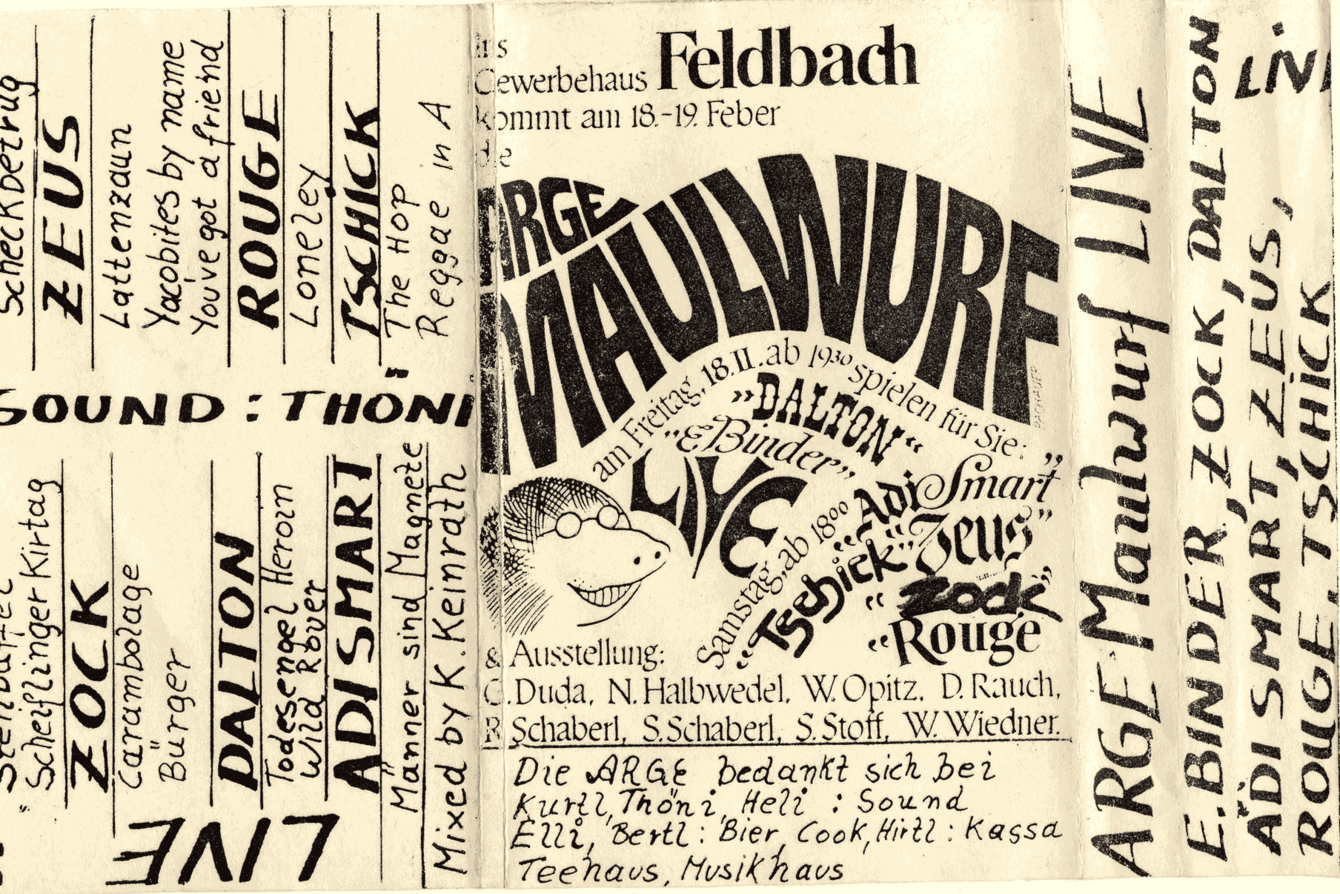 Scheckbetrug
ZEUS
Lattenzaun
Yacobites by name
You've got a friend
ROUGE
Loneley
TSCHICK
The Hop
Reggae in A
SOUND : THÖNI
Scheiflinger Kirtag
ZOCK
Carambolage
Bürger
DALTON
Todesengel Heroin
Wild Rover
ADI SMART
Männer sind Magnete
Mixed by K. Keinrath
LIVE
Ins
Gewerbehaus Feldbach
kommt am 18.-19. Feber
die
ARGE
MAULWURF
am Freitag, 18.II. ab 19³⁰ spielen für Sie:
„DALTON“
"E. Binder"
LIVE
Samstag, ab 18⁰⁰
„Adi Smart“
„Tschick“
„Zeus”
„Zock”
„Rouge
& Ausstellung:
C. Duda, N. Halbwedel, W. Opitz, D. Rauch,
R. Schaberl, S. Schaberl, S. Stoff, W. Wiedner.
Die ARGE bedankt sich bei
Kurtl, Thöni, Heli : Sound
Elli, Bertl : Bier, Cook, Hirtl : Kassa
Teehaus, Musikhaus
ARGE Maulwurf LIVE
E. BINDER, ZOCK, DALTON
ADI SMART, ZEUS,
ROUGE, TSCHICK
LIVE